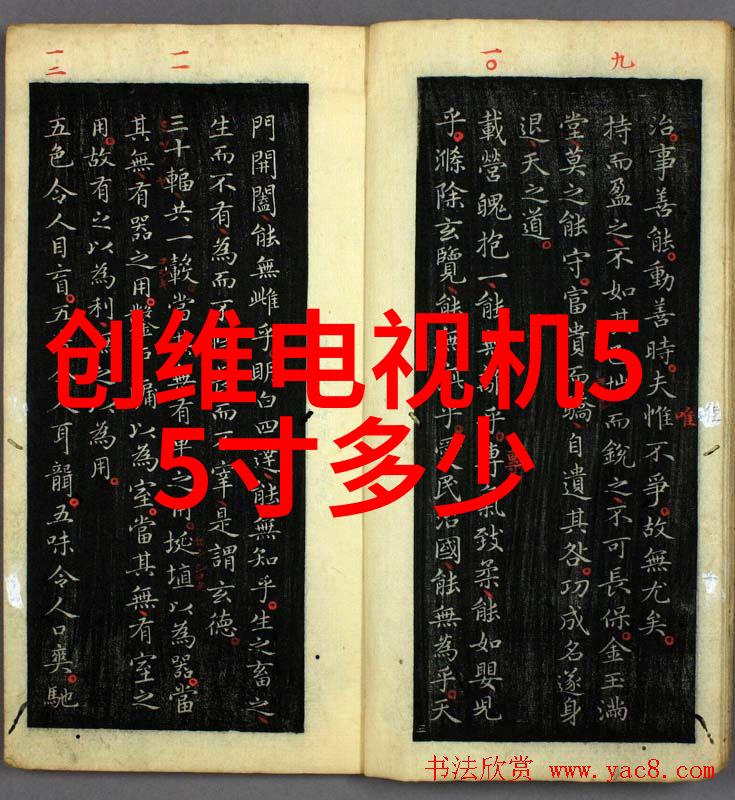 创维电视机5
5寸多少
九
治事善能動善時夫惟不爭故無尤矣
唯
持而盈之不如其而銳之不可長保金玉滿
堂莫之能守富貴而驕自遺其咎功成名遂身
退天之道
一〇
載營魄抱一能無離乎專氣致柔能如嬰兒
乎滌除玄覽能無疵乎愛民治國能無為乎天
門開闔能無雌乎明白四達能無知乎生之畜之
一一
生而不有為而不而不宰是謂玄德
三十輻共一轂當其無有車之用埏埴以為器當
其無有器之用鑿戶牖以為室當其無有室之
用故有之以為利無之以為用
一二
五色令人目盲五令人耳聾五味令人口爽馳
书法欣赏 www.yac8.com